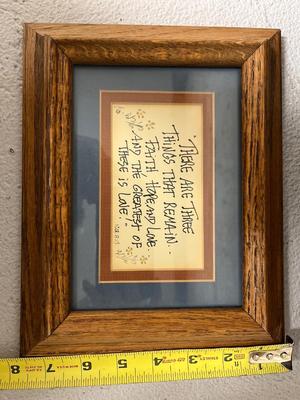 "THERE ARE THREE
THINGS THAT REMAIN..
FAITH HOPE AND LOVE.
AND THE GREATEST OF
THESE IS LOVE."
8 7 6 5 4 3 2 1